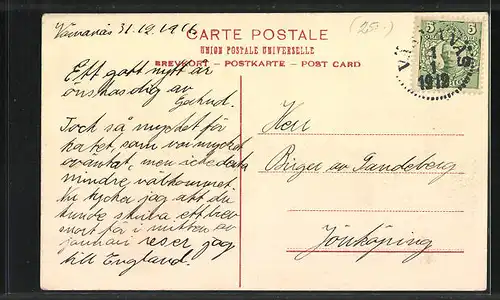 31.12.191
(250.-)
CARTE POSTALE
UNION POSTALE UNIVERSELLE
BREVKORT – POSTKARTE – POST CARD
5 5
1912
Ett gott nytt år
önskas dig av
Tack så mycket för
kortet, som var mycket
oväntat, men icke desto
mindre välkommet.
Nu tycker jag att du
kunde skriva ett brev
snart för i mitten av
januari reser jag
till England.
Herr
Birger av
Jönköping